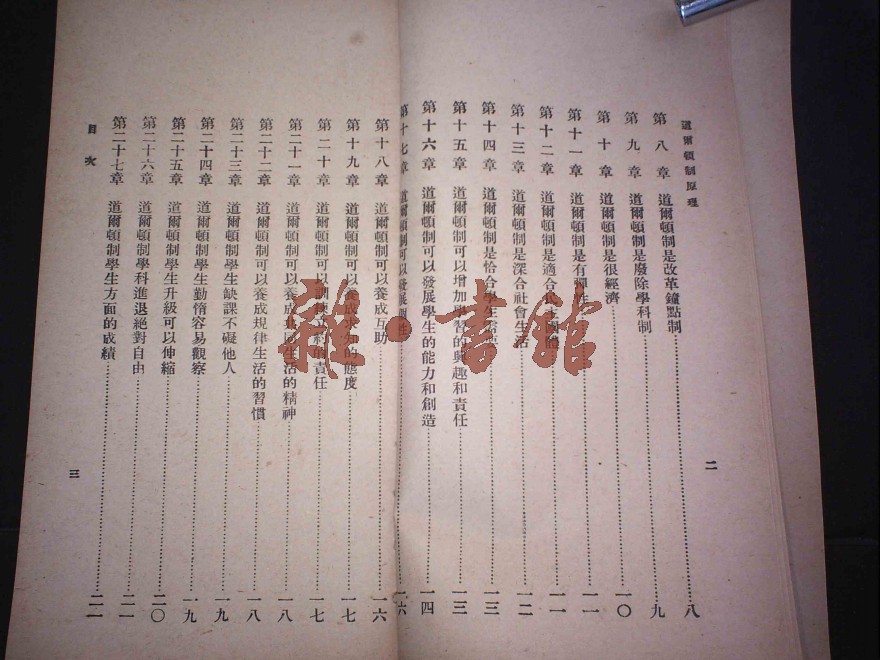 道爾頓制原理
二
第八章 道爾頓制是改革鐘點制 八
第九章 道爾頓制是廢除學科制 九
第十章 道爾頓制是很經濟 一〇
第十一章 道爾頓制是有彈性 一一
第十二章 道爾頓制是適合民主國體 一一
第十三章 道爾頓制是深合社會生活 一二
第十四章 道爾頓制是恰合學生需要 一三
第十五章 道爾頓制可以增加學習的興趣和責任 一三
第十六章 道爾頓制可以發展學生的能力和創造 一四
第十七章 道爾頓制可以發展個性 一六
第十八章 道爾頓制可以養成互助 一六
第十九章 道爾頓制可以養成求知的態度 一七
第二十章 道爾頓制可以訓練立約的責任 一七
第二十一章 道爾頓制可以養成共同生活的精神 一八
第二十二章 道爾頓制可以養成規律生活的習慣 一八
第二十三章 道爾頓制學生缺課不礙他人 一九
第二十四章 道爾頓制學生勤惰容易觀察 一九
第二十五章 道爾頓制學生升級可以伸縮 二〇
第二十六章 道爾頓制學科進退絕對自由 二一
第二十七章 道爾頓制學生方面的成績 二二
目次
三
雜·書館